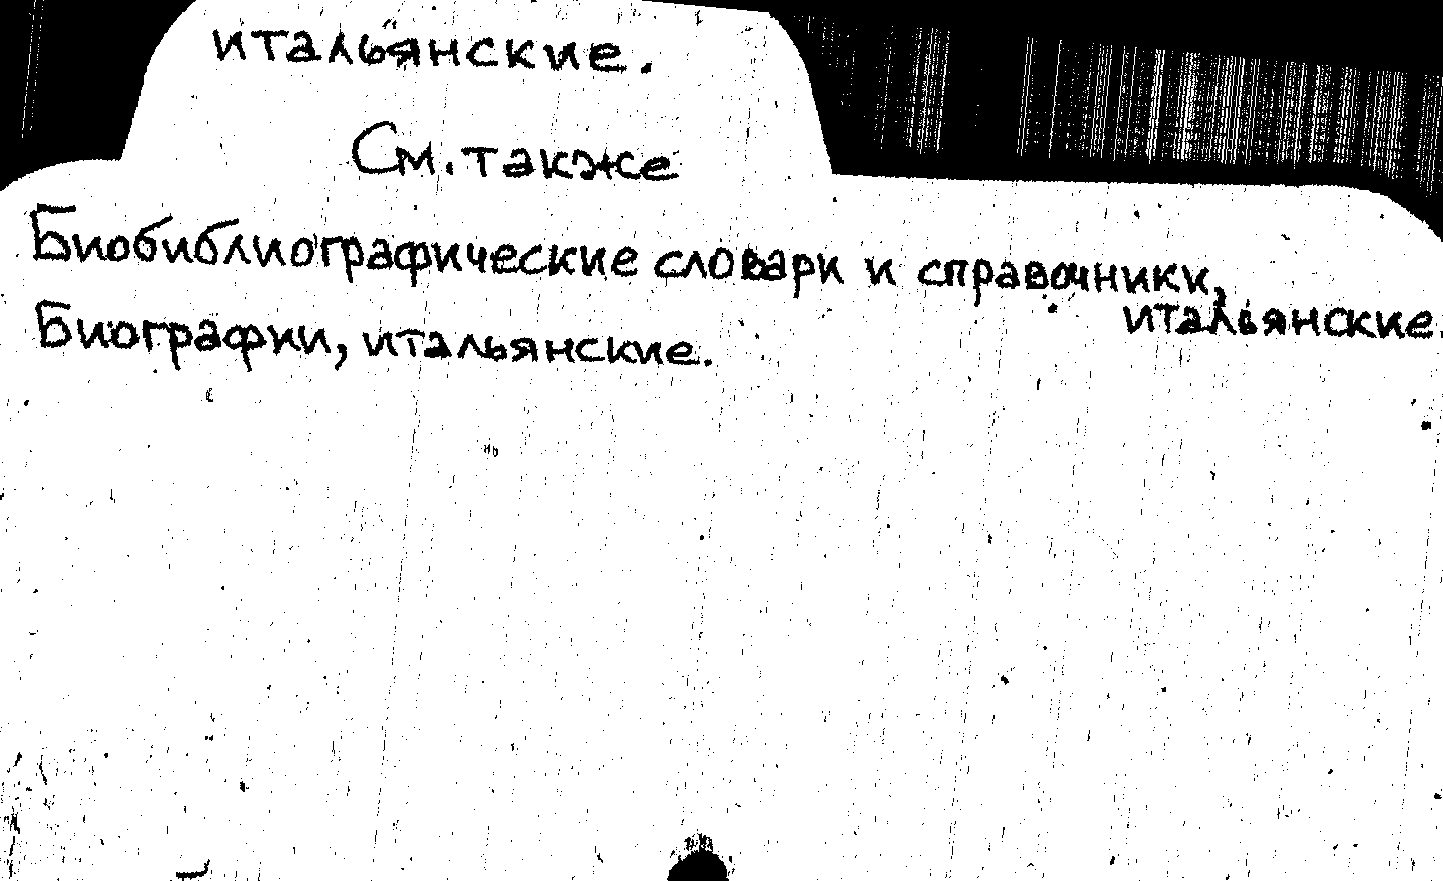 итальянские.
См. также
Биобиблиографические словари и справочники,
итальянские.
Биографии, итальянские.